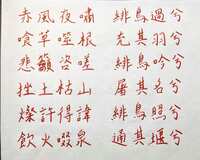 赤風夜嘯 緋鳥過兮
喰草噬根 充其羽兮
悲籲咨嗟 緋鳥吟兮
挫土枯山 屠其名兮
燦計得諱 緋鳥照兮
飲火啜泉 通其堰兮